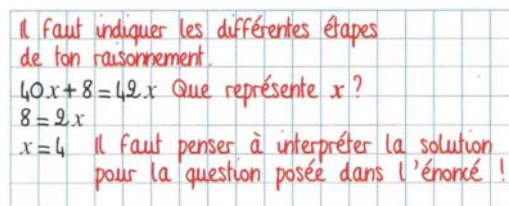 Il faut indiquer les différentes étapes
de ton raisonnement.
40x + 8 = 42x Que représente x ?
8 = 2x
x = 4 Il faut penser à interpréter la solution
pour la question posée dans l'énoncé !